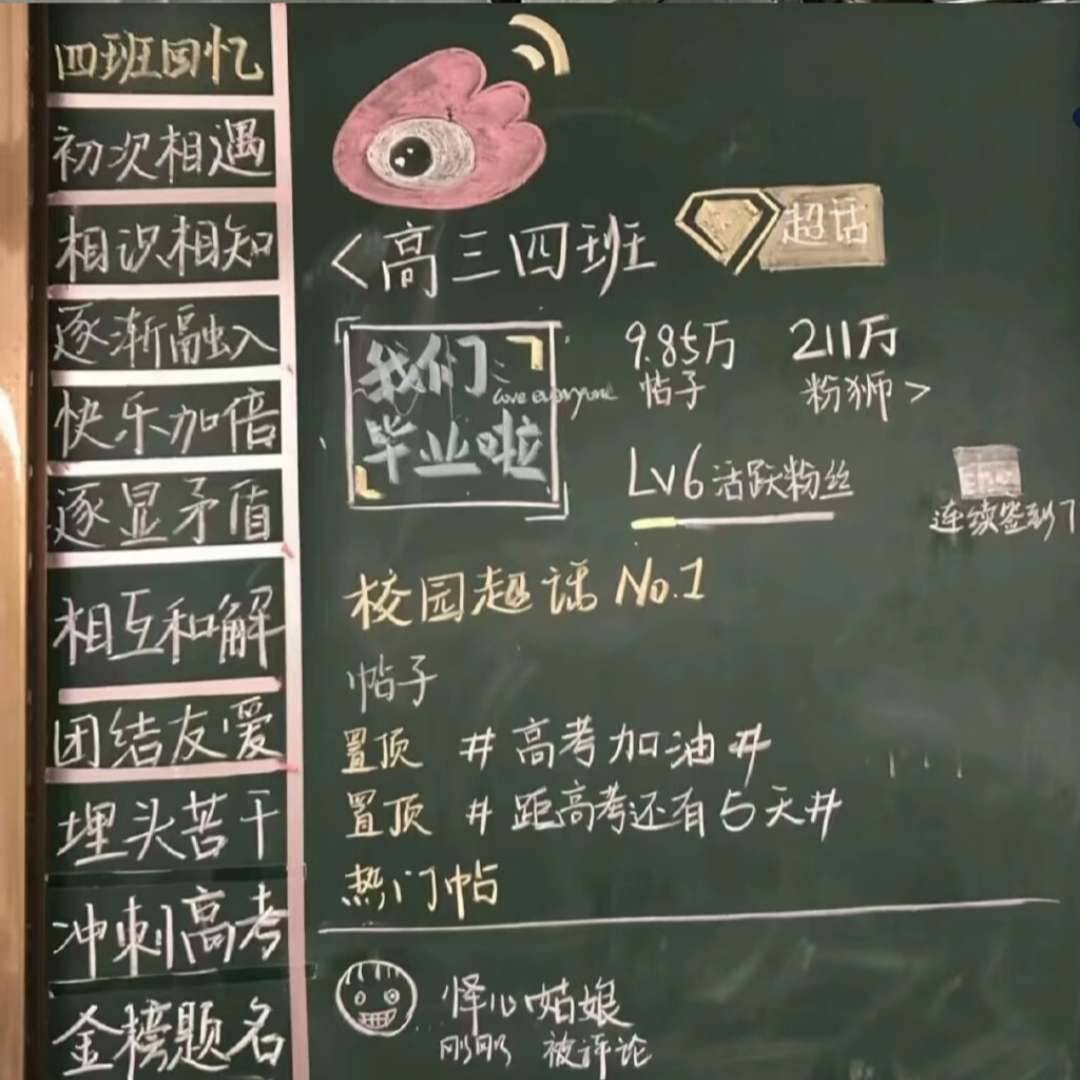 四班回忆
初次相遇
相识相知
逐渐融入
快乐加倍
逐显矛盾
相互和解
团结友爱
埋头苦干
冲刺高考
金榜题名
<高三四班
超话
我们
love everyone
毕业啦
9.85万 211万
帖子 粉狮>
Lv6活跃粉丝
连续签到了
校园超话 No.1
帖子
置顶 #高考加油#
置顶 #距高考还有5天#
热门帖
怿心姑娘
刚刚 被评论